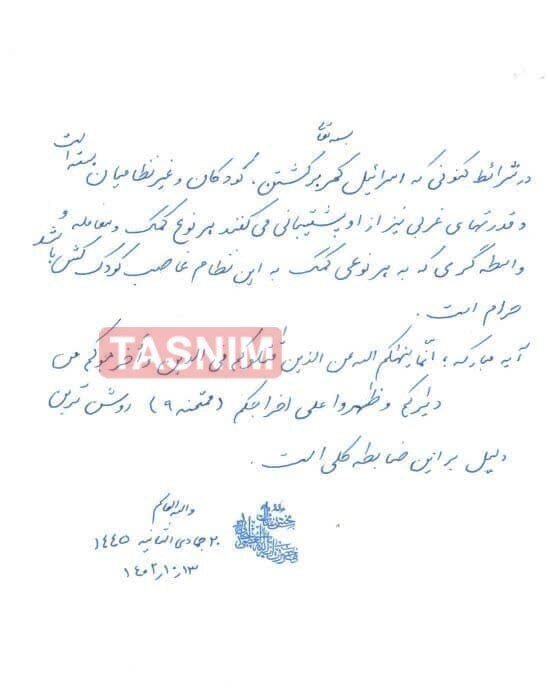 بسمه تعالی
در شرائط کنونی که اسرائیل کمر بر کشتن کودکان و غیرنظامیان بسته است
و قدرتهای غربی نیز از او پشتیبانی می‌کنند هر نوع کمک و معامله و
واسطه گری که به هر نوعی کمک به این نظام غاصب کودک کش باشد
حرام است.
آیه مبارکه؛ انّما ینهاکم الله عن الذین قاتلوکم فی الدین و أخرجوکم من
دیارکم و ظهروا علی اخراجکم (ممتحنه ۹) روشن ترین
دلیل بر این ضابطه کلی است.
TASNIM
والله العالم
۲۰ جمادی الثانیه ۱۴۴۵
۱۴۰۲٫۱۰٫۱۳